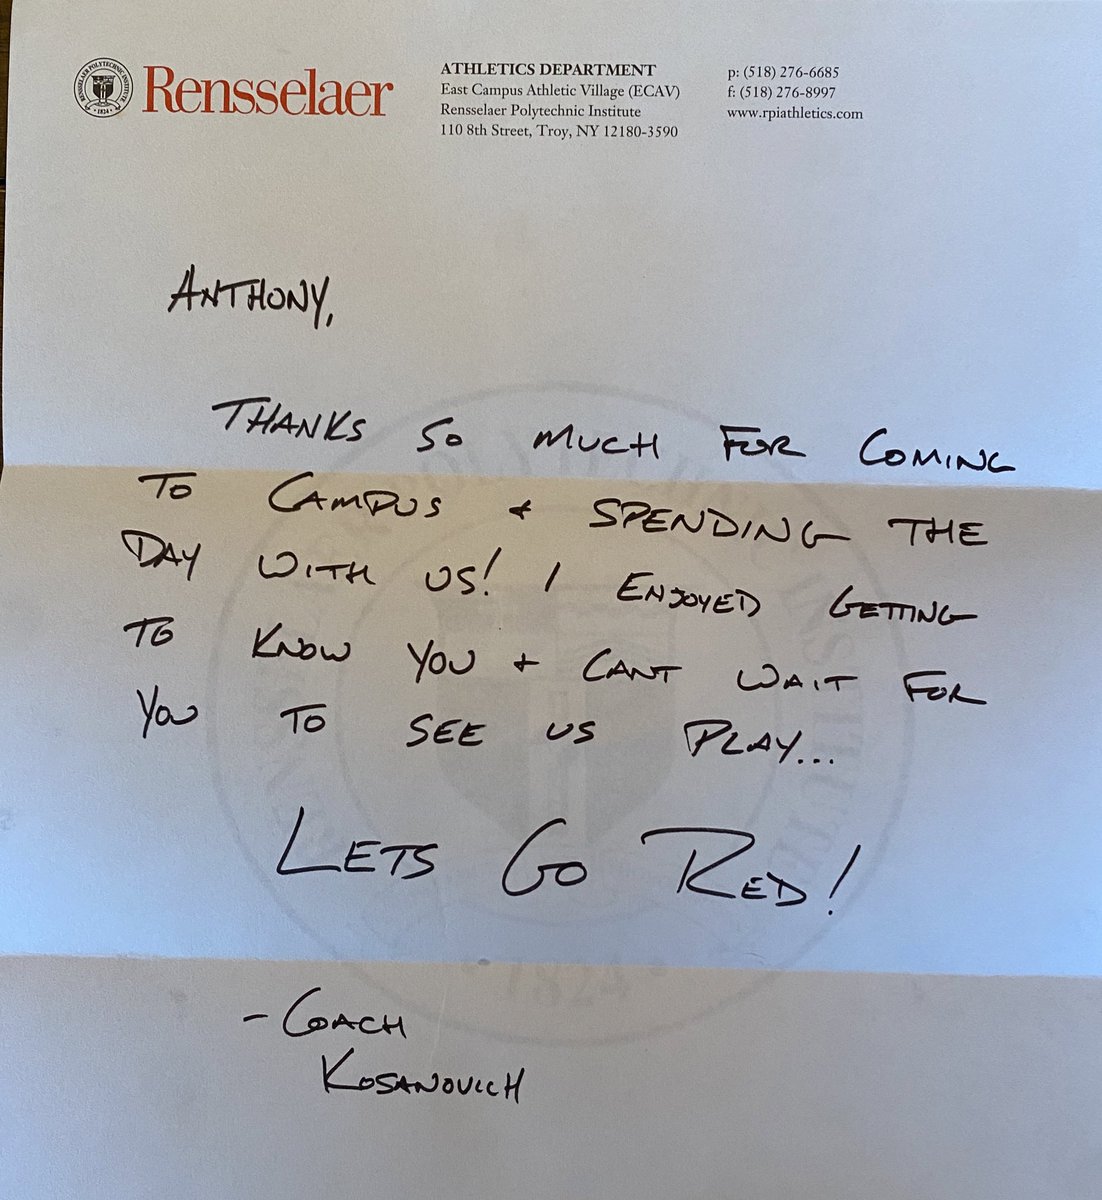 Rensselaer
ATHLETICS DEPARTMENT
East Campus Athletic Village (ECAV)
Rensselaer Polytechnic Institute
110 8th Street, Troy, NY 12180-3590
p: (518) 276-6685
f: (518) 276-8997
www.rpiathletics.com
RENSSELAER POLYTECHNIC INSTITUTE
1824
ANTHONY,
THANKS SO MUCH FOR COMING
TO CAMPUS + SPENDING THE
DAY WITH US! I ENJOYED GETTING
TO KNOW YOU + CANT WAIT FOR
YOU TO SEE US PLAY...
LETS GO RED!
- COACH
KOSANOVICH